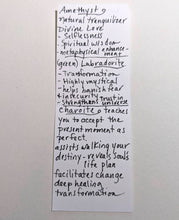 Amethyst
natural tranquilizer
Divine Love
- Selflessness
- Spiritual wisdom
- metaphysical enhance-
ment
(green) Labradorite
- Tranformation
- Highly mystical
- helps banish fear
+ insecurity trust in
- strengthens universe
Charoite teaches
you to accept the
present moment as
perfect.
assists walking your
destiny - reveals souls
life plan
facilitates change
deep healing
transformation